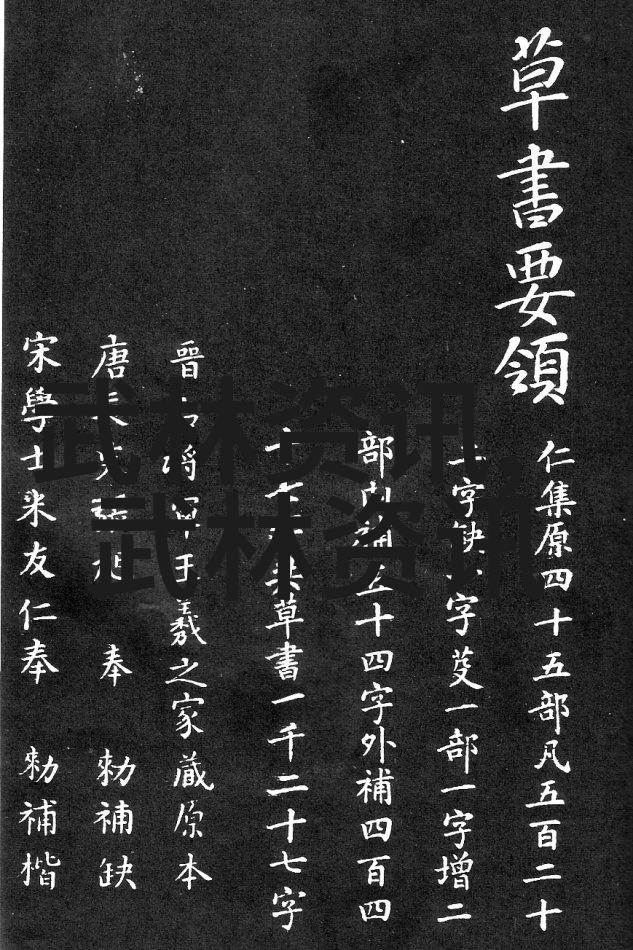 草書要領
仁集原四十五部凡五百二十
二字缺字芟一部一字增二
部內補五十四字外補四百四
十共草書一千二十七字
晉右將軍王羲之家藏原本
唐長史張旭 奉 勅補缺
宋學士米友仁奉 勅補楷
武林资讯
武林资讯